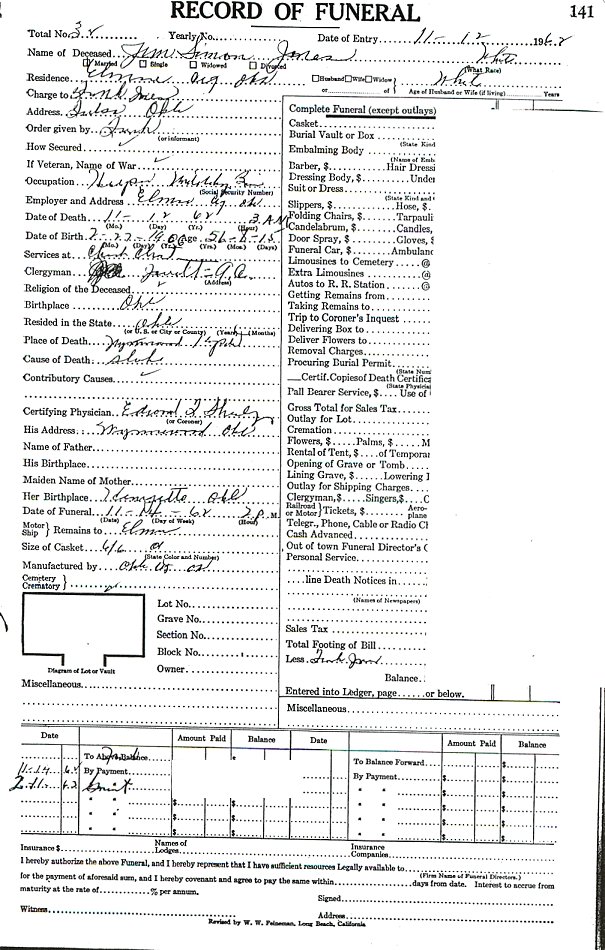 RECORD OF FUNERAL 141
Total No. Yearly No. Date of Entry 11-12 1962
Name of Deceased Jim Simon Jones White
Married Single Widowed Divorced (What Race)
Residence Okl Husband Wife Widow
or of Age of Husband or Wife (if living) Years
Charge to
Address Tulsa Okl
Order given by Frank
(or informant)
How Secured
If Veteran, Name of War
Occupation
(Social Security Number)
Employer and Address Elmore Okl
Date of Death 11-12 62 3 A.M.
(Mo.) (Day) (Yr.) (Hour)
Date of Birth 2-27-1906 Age 56-8-15
(Mo.) (Day) (Yr.) (Yrs.) (Mos.) (Days)
Services at
Clergyman
(Address)
Religion of the Deceased
Birthplace Okl
Resided in the State Okl
(or U. S. or City or County) (Years) (Months)
Place of Death Wynnewood
Cause of Death
Contributory Causes
Certifying Physician Edward
(or Coroner)
His Address Wynnewood Okl
Name of Father
His Birthplace
Maiden Name of Mother
Her Birthplace Okl
Date of Funeral 11-14-62 2 P.M.
(Date) (Day of Week) (Hour)
Motor
Ship } Remains to Elmore
Size of Casket 6/6
(State Color and Number)
Manufactured by Okl
Cemetery
Crematory }
Diagram of Lot or Vault
Lot No.
Grave No.
Section No.
Block No.
Owner
Miscellaneous
Complete Funeral (except outlays)
Casket
Burial Vault or Box
(State Kind
Embalming Body
(Name of Emb
Barber, $ Hair Dressi
Dressing Body, $ Under
Suit or Dress
(State Kind and
Slippers, $ Hose, $
Folding Chairs, $ Tarpauli
Candelabrum, $ Candles,
Door Spray, $ Gloves, $
Funeral Car, $ Ambulanc
Limousines to Cemetery @
Extra Limousines @
Autos to R. R. Station @
Getting Remains from
Taking Remains to
Trip to Coroner's Inquest
Delivering Box to
Deliver Flowers to
Removal Charges
Procuring Burial Permit
(State Num
Certif. Copies of Death Certific
(State Physicia
Pall Bearer Service, $ Use of
Gross Total for Sales Tax
Outlay for Lot
Cremation
Flowers, $ Palms, $ M
Rental of Tent, $ of Temporar
Opening of Grave or Tomb
Lining Grave, $ Lowering
Outlay for Shipping Charges
Clergyman, $ Singers, $ C
Railroad
or Motor } Tickets, $ Aero-
plane
Telegr., Phone, Cable or Radio Ch
Cash Advanced
Out of town Funeral Director's C
Personal Service
line Death Notices in
(Names of Newspapers)
Sales Tax
Total Footing of Bill
Less
Balance
Entered into Ledger, page or below.
Miscellaneous
Date Amount Paid Balance Date Amount Paid Balance
To Above Balance To Balance Forward $
11-14 62 By Payment By Payment $
" " $ $ " " $ $
" " $ $ " " $ $
" " $ $ " " $ $
" " $ $ " " $ $
Insurance $ Names of Lodges Insurance Companies
I hereby authorize the above Funeral, and I hereby represent that I have sufficient resources Legally available to
(Firm Name of Funeral Directors.)
for the payment of aforesaid sum, and I hereby covenant and agree to pay the same within days from date. Interest to accrue from
maturity at the rate of % per annum.
Signed
Witness Address
Revised by W. W. Feineman, Long Beach, California